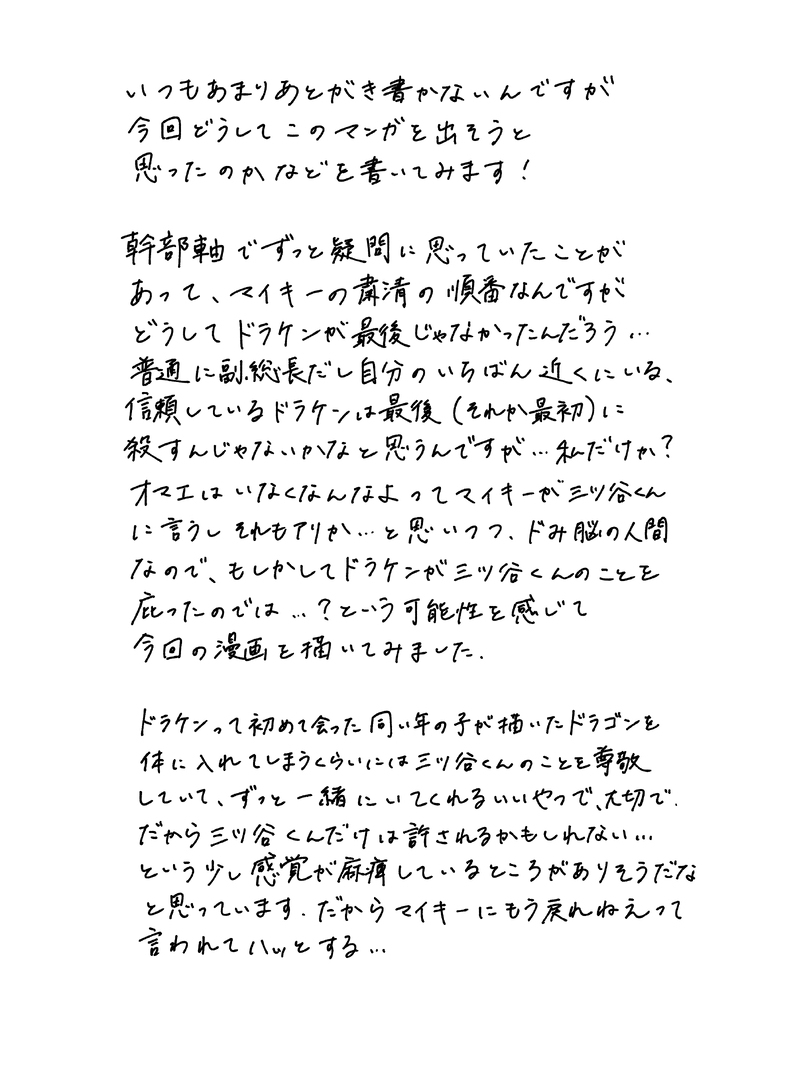 いつもあまりあとがき書かないんですが
今回どうしてこのマンガを出そうと
思ったのかなどを書いてみます!
幹部軸でずっと疑問に思っていたことが
あって、マイキーの粛清の順番なんですが
どうしてドラケンが最後じゃなかったんだろう…
普通に副総長だし自分のいちばん近くにいる、
信頼しているドラケンは最後(それか最初)に
殺すんじゃないかなと思うんですが…私だけか?
オマエはいなくなんなよってマイキーが三ツ谷くん
に言うしそれもアリか…と思いつつ、ドみ脳の人間
なので、もしかしてドラケンが三ツ谷くんのことを
庇ったのでは…?という可能性を感じて
今回の漫画を描いてみました.
ドラケンって初めて会った同い年の子が描いたドラゴンを
体に入れてしまうくらいには三ツ谷くんのことを尊敬
していて、ずっと一緒にいてくれるいいやつで、大切で.
だから三ツ谷くんだけは許されるかもしれない…
という少し感覚が麻痺しているところがありそうだな
と思っています.だからマイキーにもう戻れねえって
言われてハッとする…